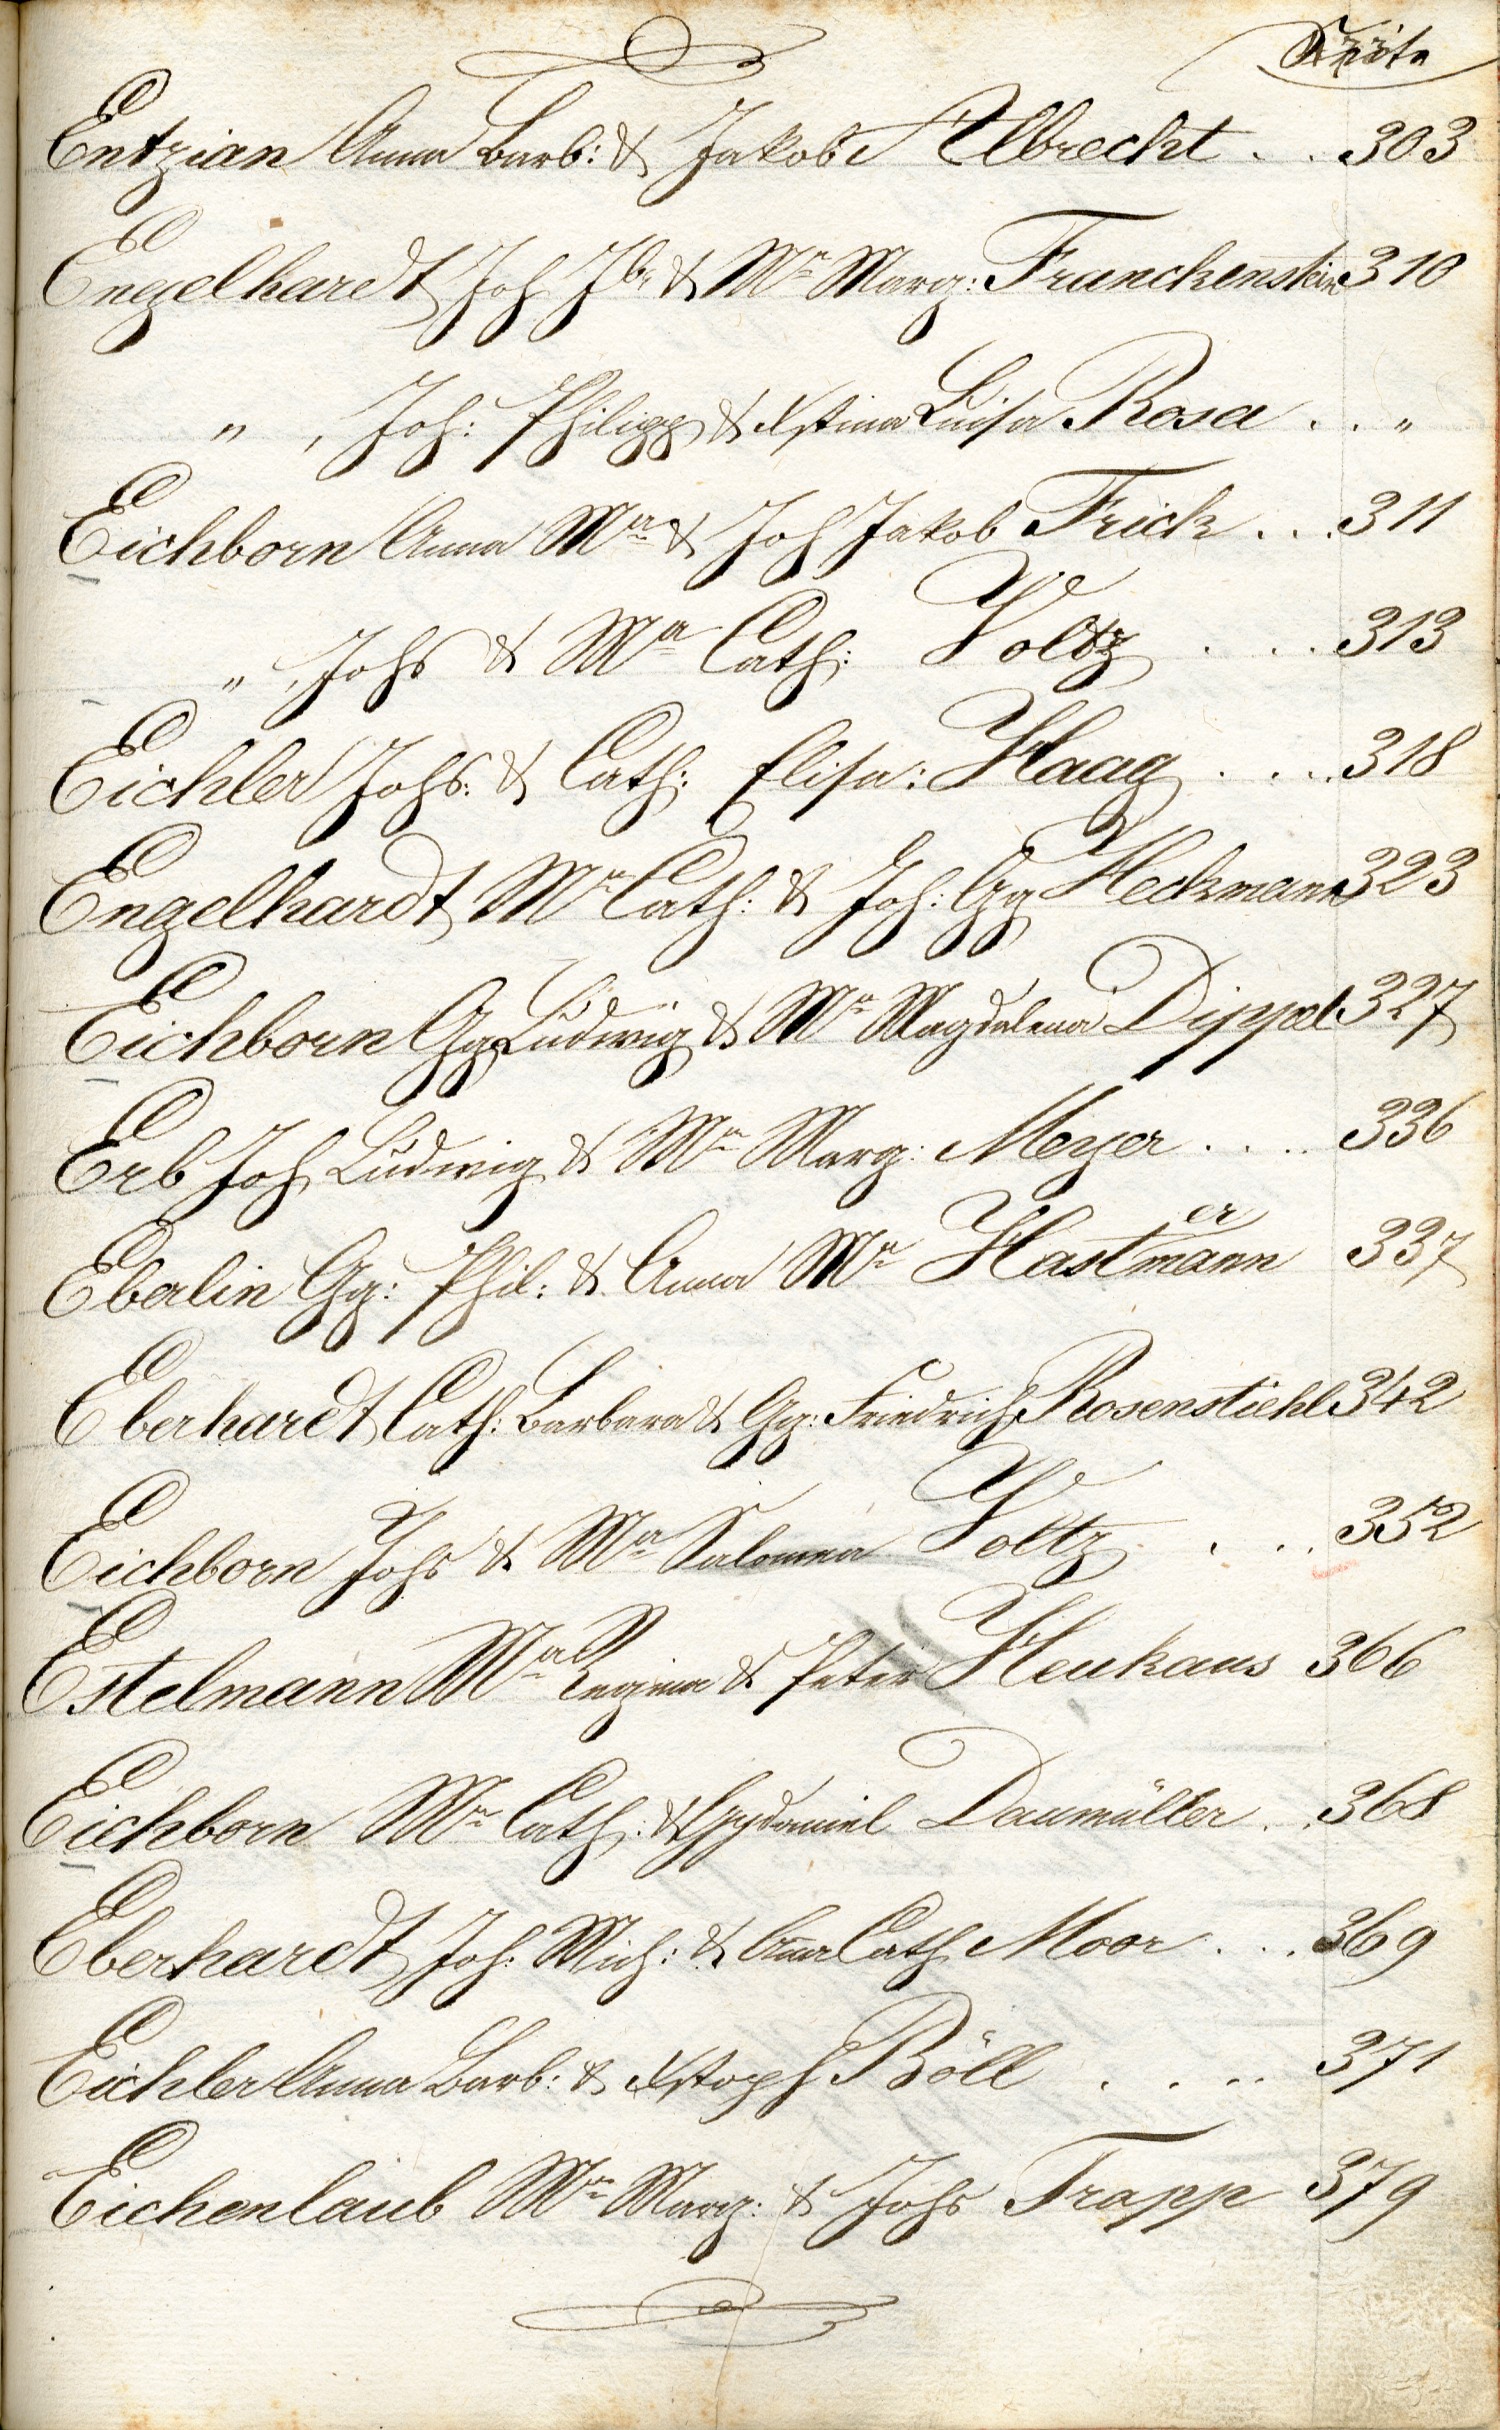 Seite
Entzian Anna Barb: & Jakob Albrecht . . 303
Engelhardt Joh Jb. & Ma Marg: Franckenstein 310
" , Joh: Philipp & Xstina Luisa Rosa . . "
Eichborn Anna Ma & Joh Jakob Frick . . . 311
" , Johs & Ma Cath: Voltz . . . . 313
Eichler Johs. & Cath: Elisa: Haag . . . . 318
Engelhardt Ma Cath: & Joh: Gg Heckmann 323
Eichborn Gg Ludwig & Ma Magdalena Dippel 327
Erb Joh Ludwig & Ma Marg: Meyer . . . . 336
er
Eberlin Gg: Phil: & Anna Ma Hastmann 337
Eberhardt Cath: Barbara & Gg: Friedrich Rosenstiehl 342
Eichborn Johs & Ma Salomea Voltz . . . . 352
Estelmann Ma Regina & Peter Heukaus 366
Eichborn Ma Cath: & Ggdaniel Daumüller . . 368
Eberhardt Joh: Mich: & Anna Cath Moor . . . 369
Eichler Anna Barb: & Xstoph Böll . . . . 371
Eichenlaub Ma Marg: & Johs Trapp 379